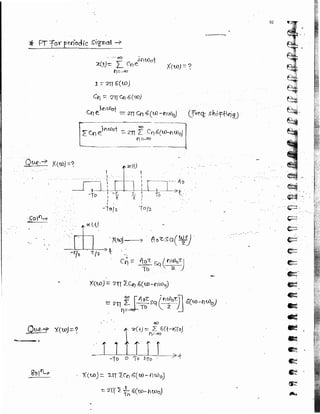 92
* FT for periodic signal →
x(t) = ∞ Σ n=-∞ Cn e^jnω0t X(ω) = ?
1 = 2π δ(ω)
Cn = 2π Cn δ(ω)
Cn e^jnω0t = 2π Cn δ(ω-nω0) (freq. shifting)
Σ Cn e^jnω0t = 2π ∞ Σ n=-∞ Cn δ(ω-nω0)
Que.→ X(ω) = ?
x(t)
A0
-T0 T0 t
-T0/2 T0/2
Sol→
x(t)
X(ω) → A0τ Sa(ωτ/2)
-τ/2 τ/2 t
Cn = A0τ/T0 Sa(nω0τ/2)
X(ω) = 2π Σ Cn δ(ω-nω0)
= 2π ∞ Σ n=-∞ [A0τ/T0 Sa(nω0τ/2)] δ(ω-nω0)
Que→ X(ω) = ?
x(t) = ∞ Σ n=-∞ δ(t-nT0)
-T0 0 T0 2T0 t
Sol→ X(ω) = 2π Σ Cn δ(ω-nω0)